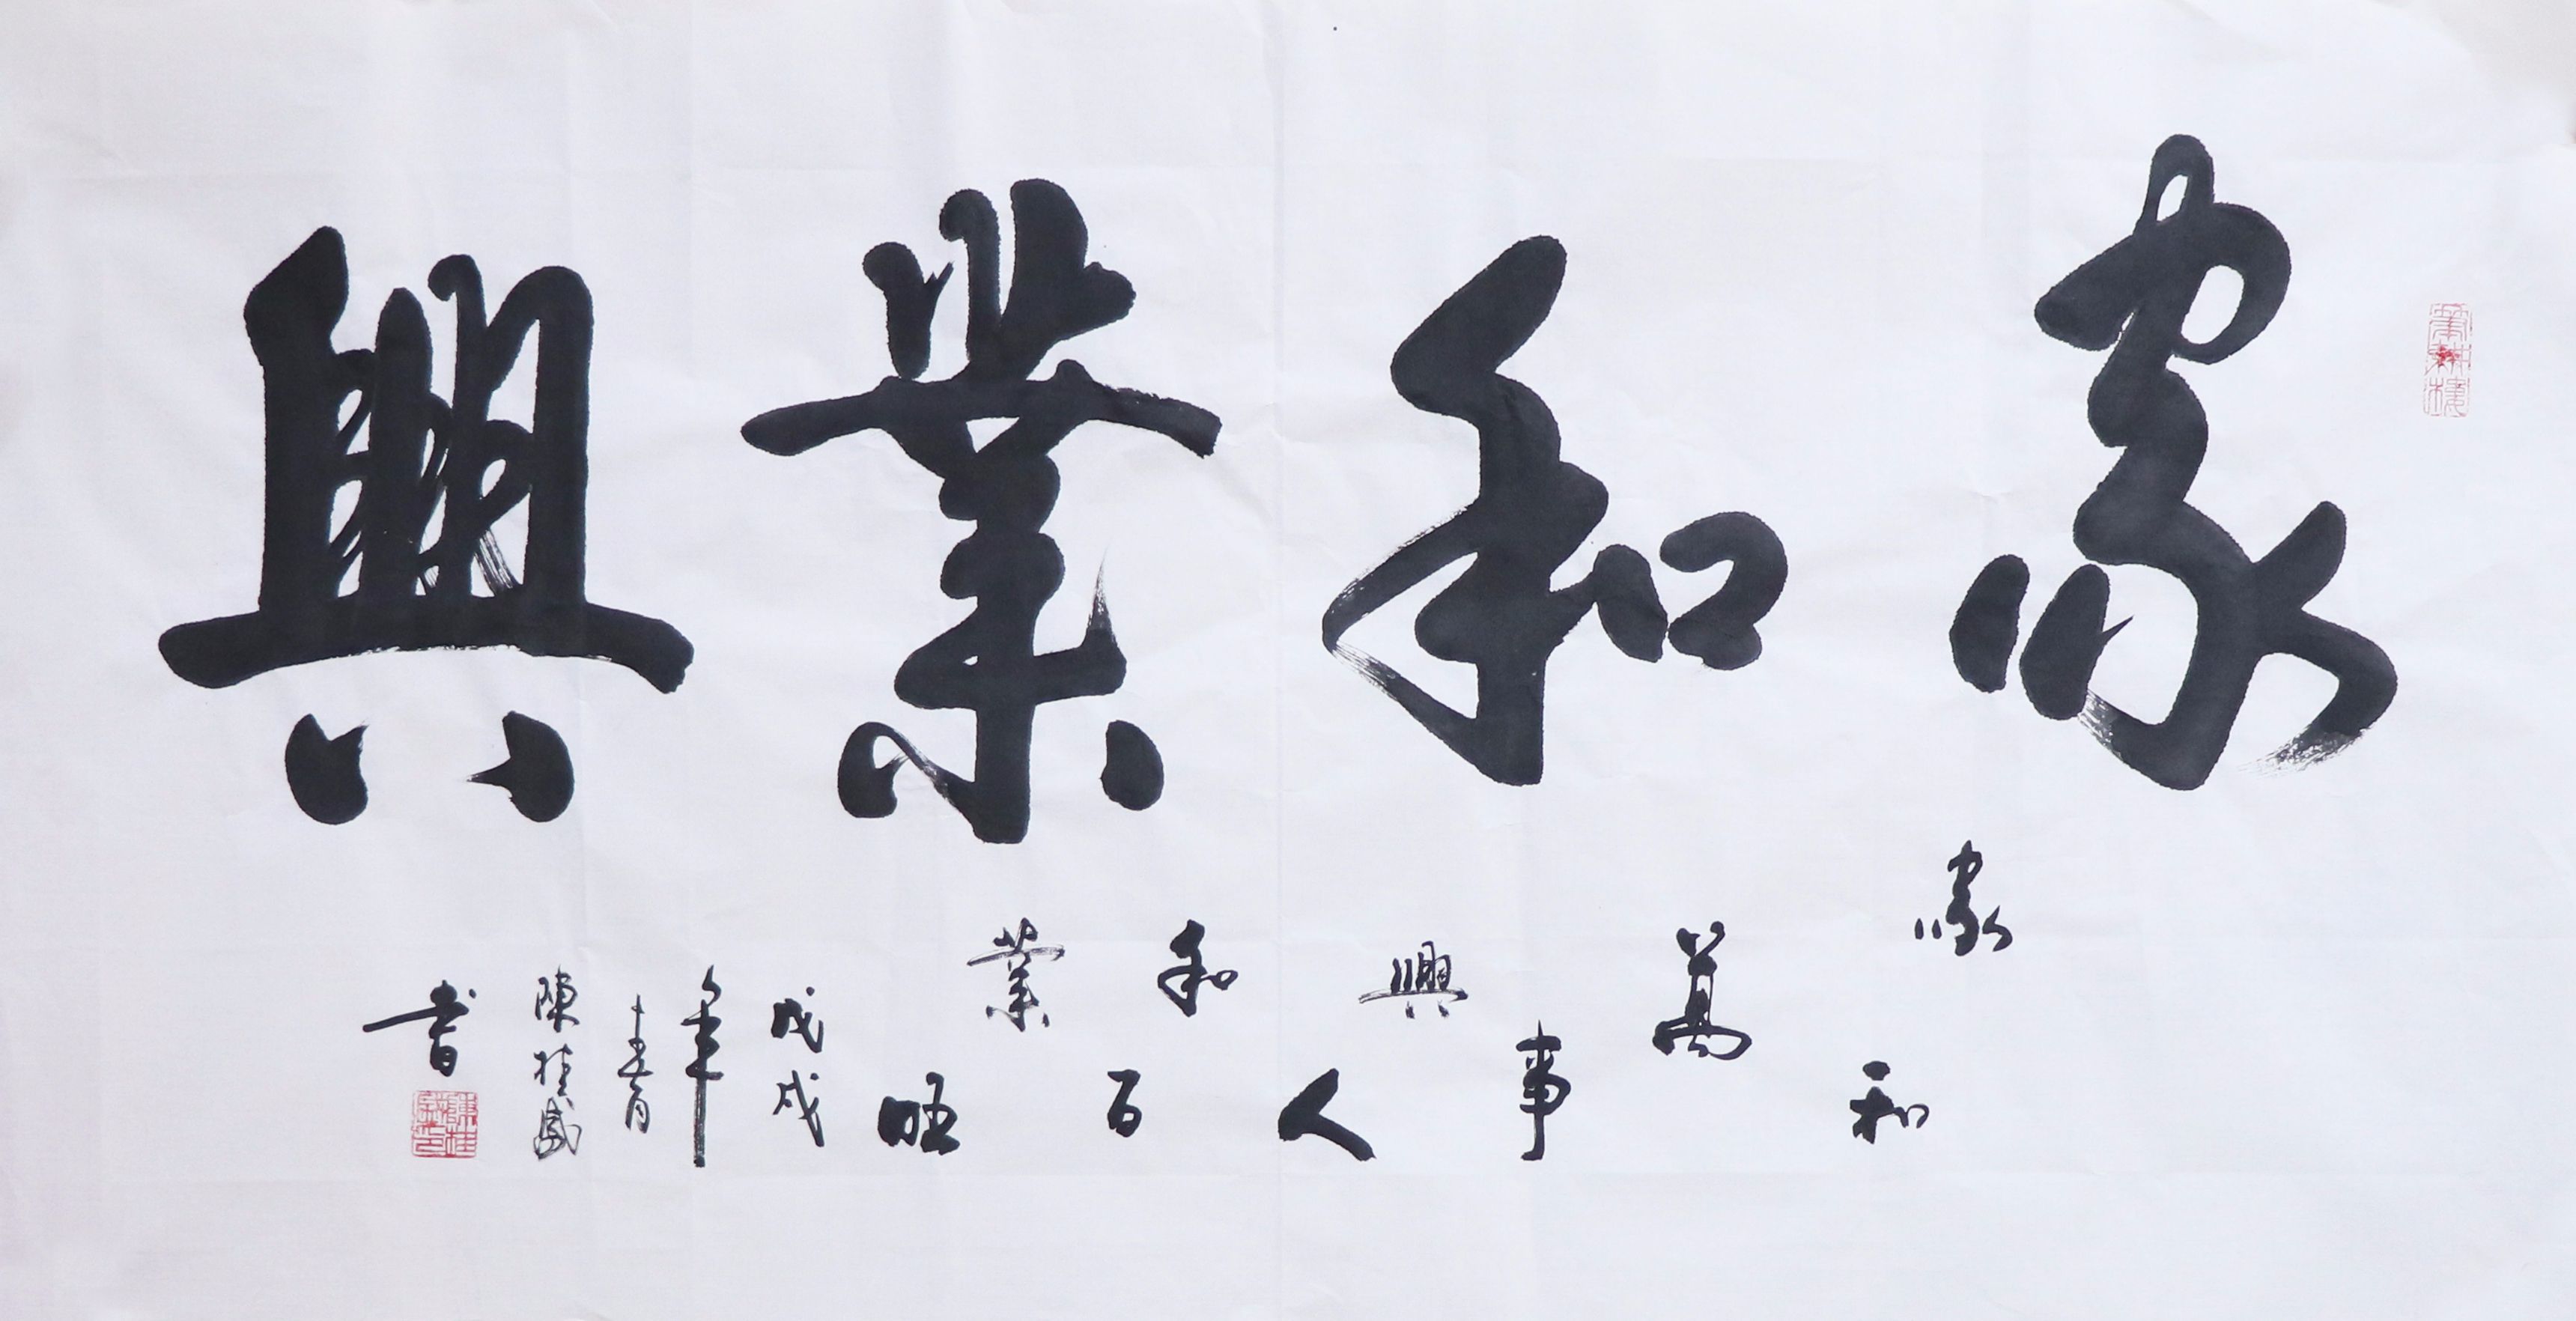 家和業興
家和萬事興人和百業旺
戊戌年
陳桂盛
書